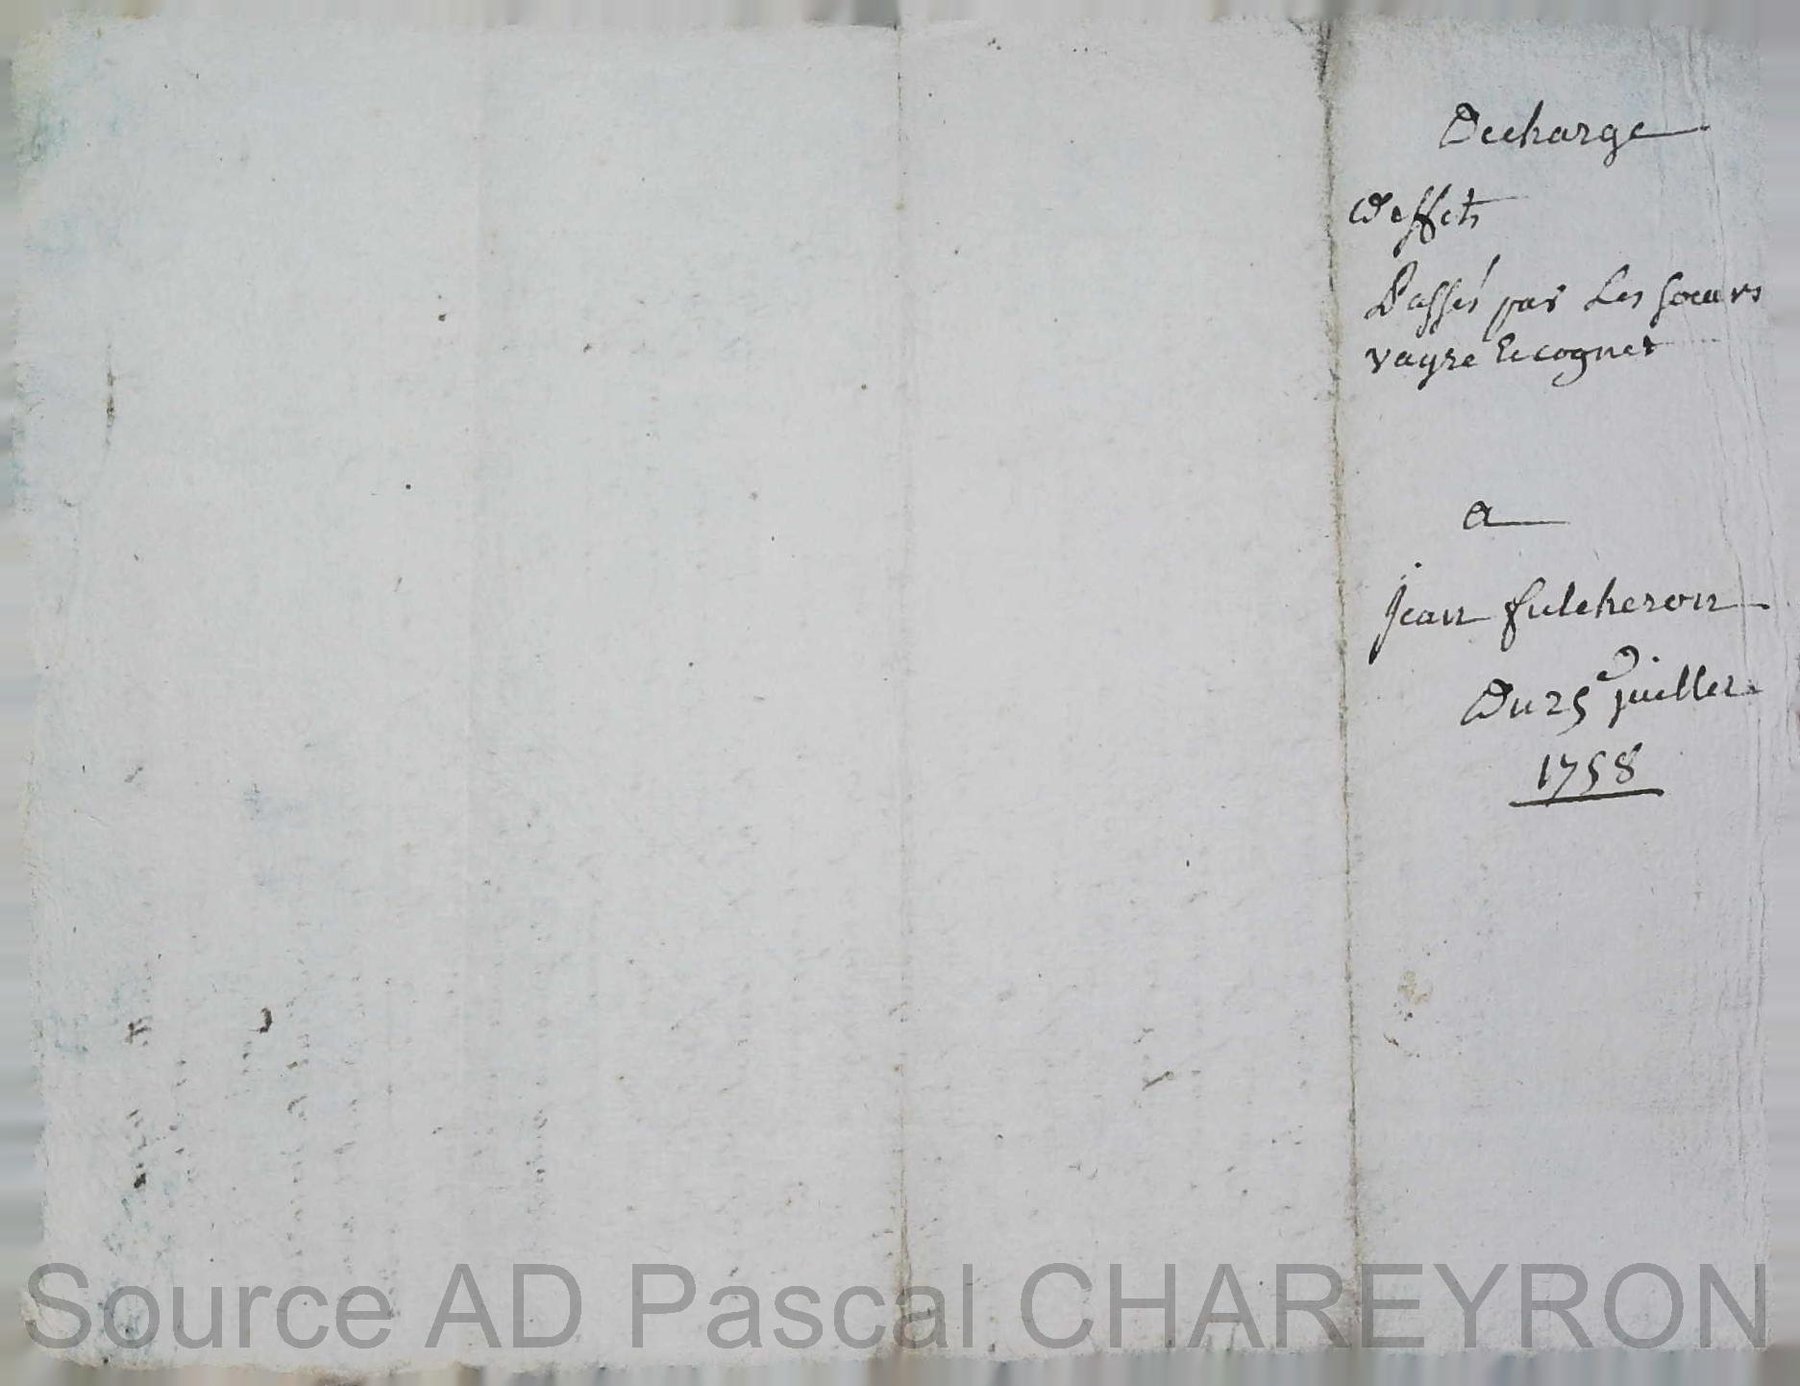 Decharge
Deffets
Passés par Les soeurs
vayre et cognet
a
jean fulcheron
Du 25e juillet
1758
Source AD Pascal CHAREYRON